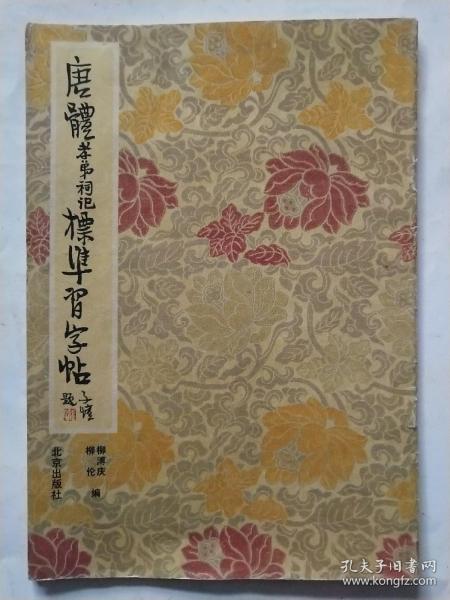 唐體孝弟祠记標準習字帖
子愷
題
柳溥庆
柳伦 编
北京出版社
孔夫子旧书网
www.kongfz.com